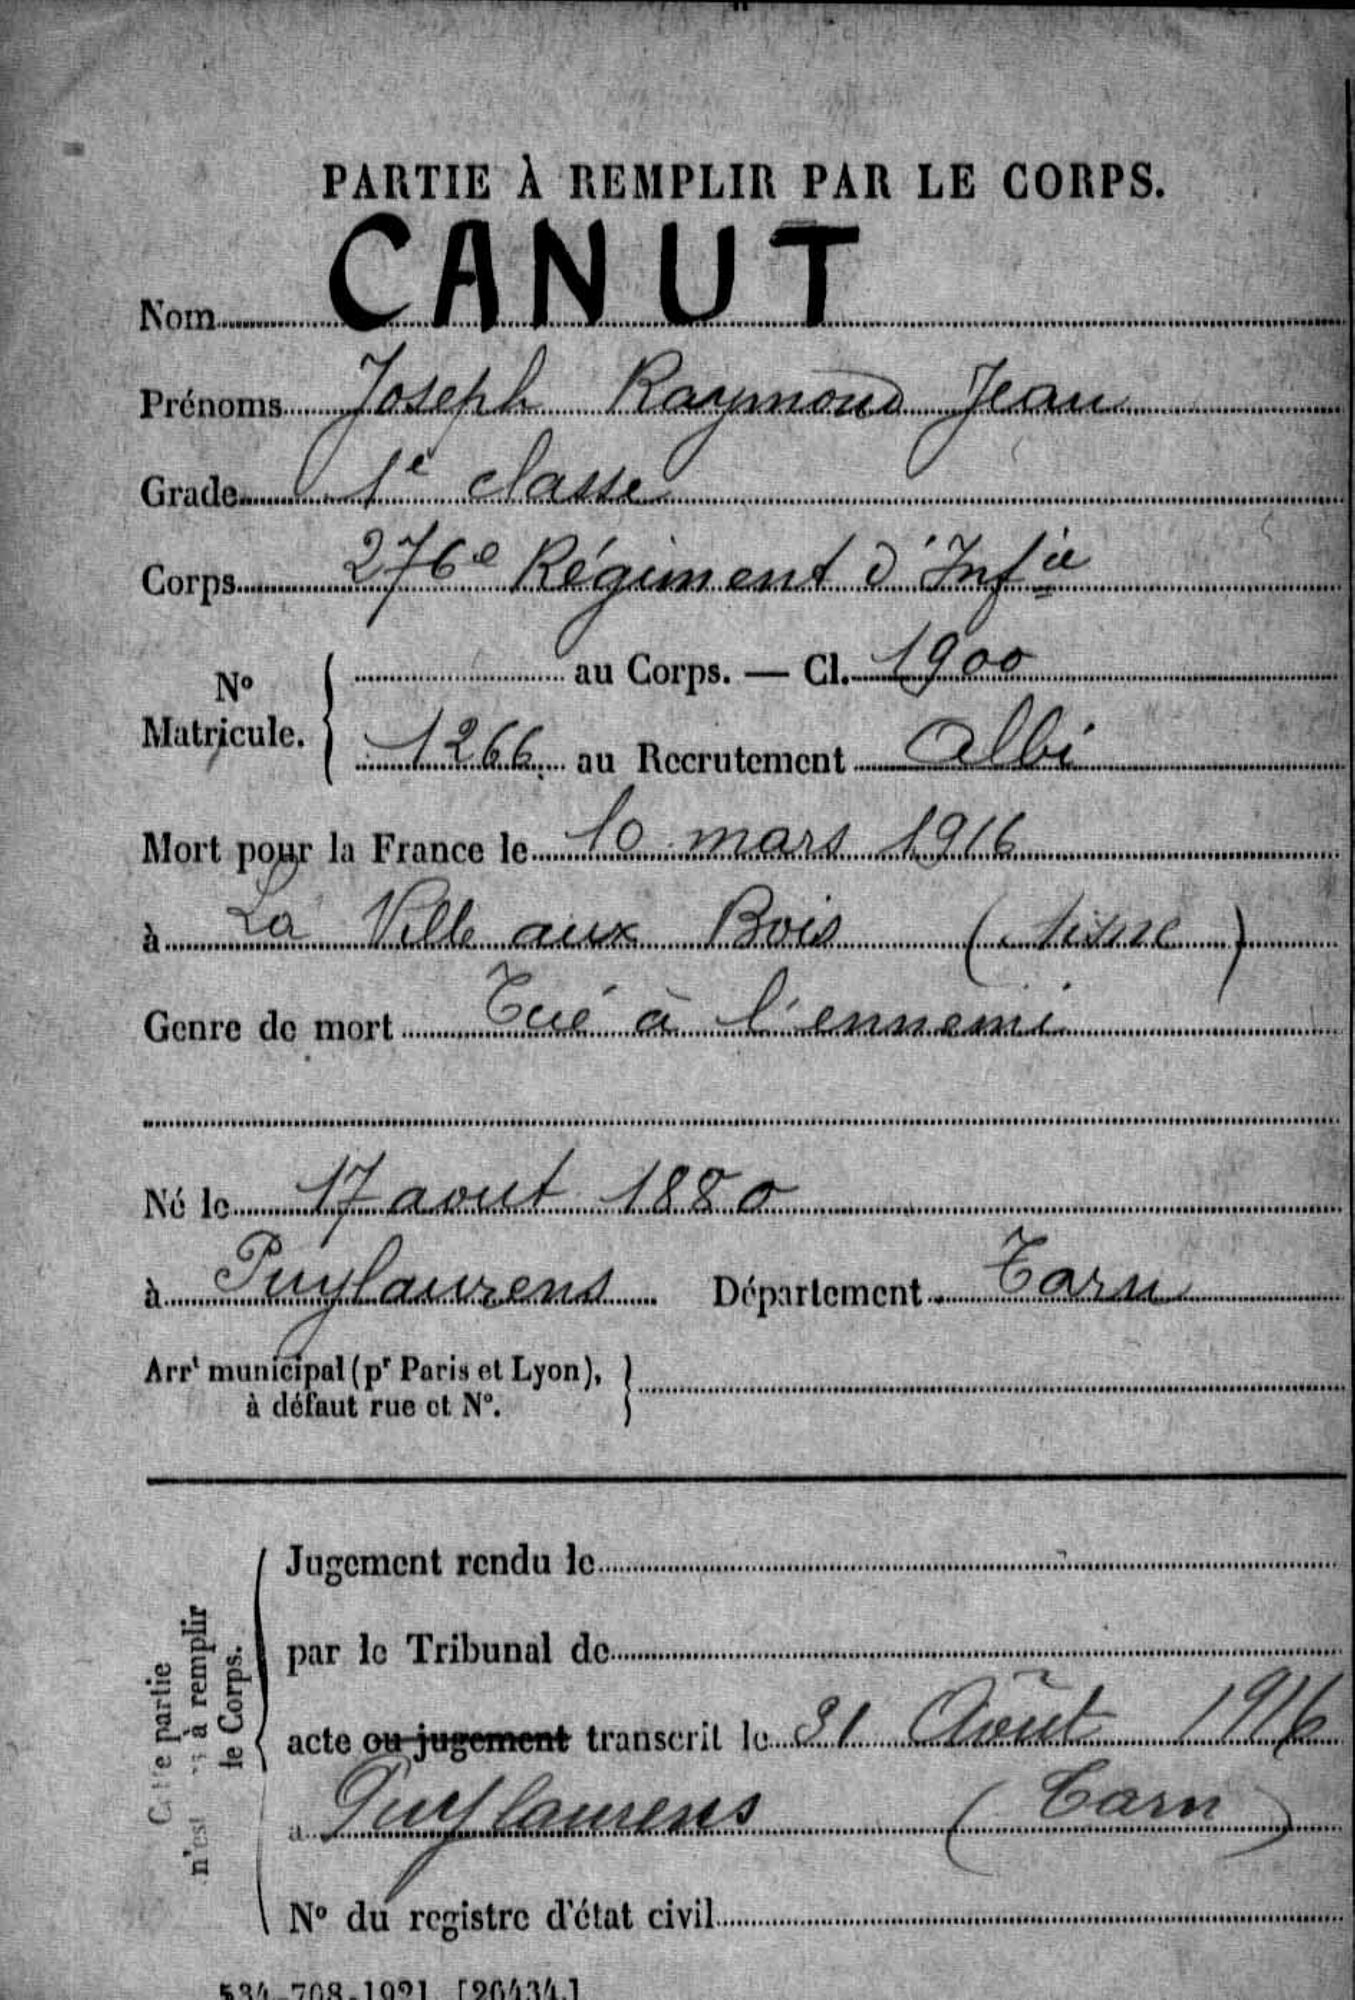 PARTIE À REMPLIR PAR LE CORPS.
Nom CANUT
Prénoms Joseph Raymond Jean
Grade 1e classe
Corps 276e Régiment d'Infie
No Matricule. { au Corps. — Cl. 1900
1266 au Recrutement Albi
Mort pour la France le 10 mars 1916
à La Ville aux Bois (Aisne)
Genre de mort Tué à l'ennemi
Né le 17 aout 1880
à Puylaurens Département Tarn
Arrt municipal (pr Paris et Lyon), }
à défaut rue et No.
Cette partie
n'est à remplir
le Corps.
Jugement rendu le
par le Tribunal de
acte ou jugement transcrit le 31 Août 1916
à Puylaurens (Tarn)
No du registre d'état civil
534-708-1921. [26434.]